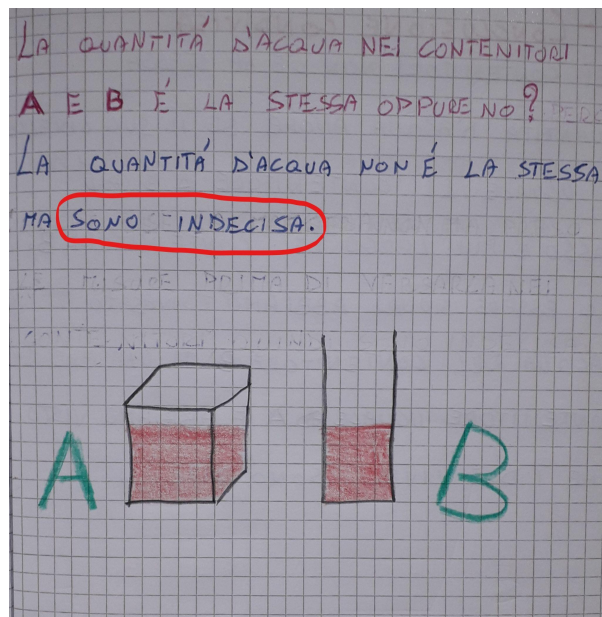 LA QUANTITÁ D'ACQUA NEI CONTENITORI
A E B É LA STESSA OPPURE NO?
LA QUANTITÁ D'ACQUA NON É LA STESSA
MA SONO INDECISA.
A
B